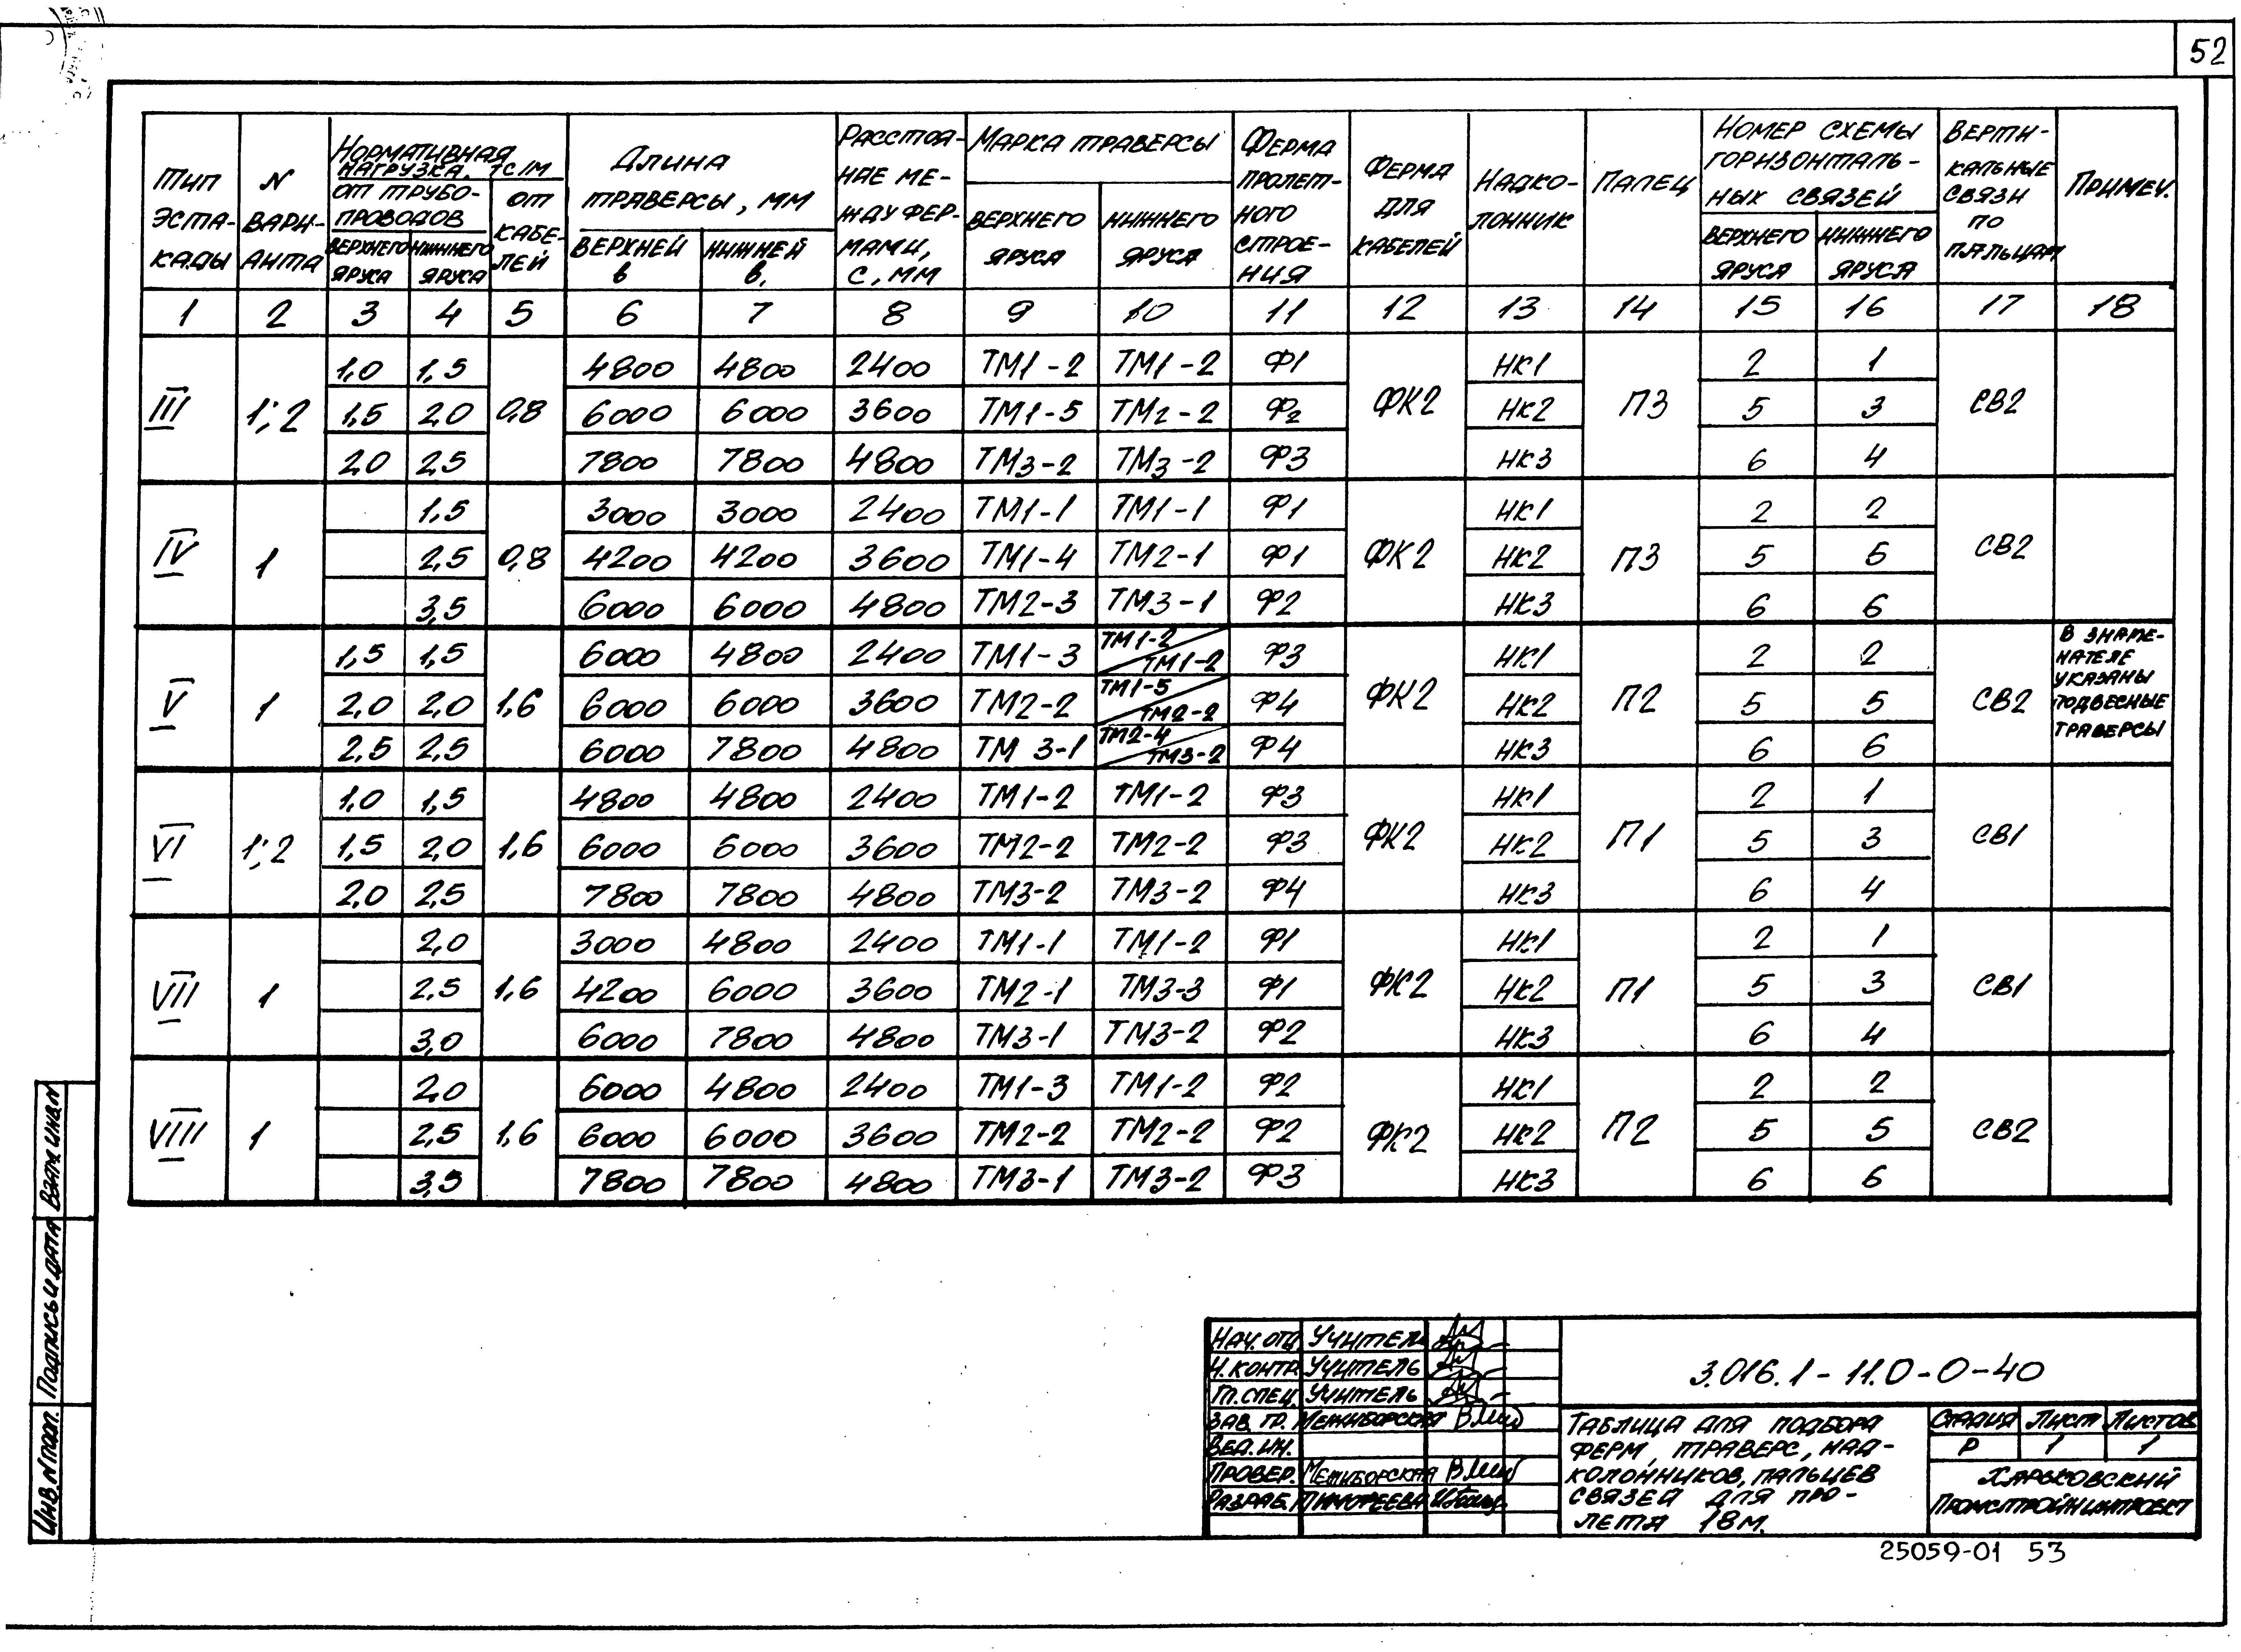 52
Тип эста- кады | N вари- анта | Нормативная нагрузка, тс/м | Длина траверсы, мм | Расстоя- ние ме- жду фер- мами, с, мм | Марка траверсы | Ферма пролет- ного строе- ния | Ферма для кабелей | Надко- лонник | Палец | Номер схемы горизонталь- ных связей | Верти- кальные связи по пальцам | Примеч.
от трубо- проводов | от кабе- лей | верхней в | нижней в, | верхнего яруса | нижнего яруса | верхнего яруса | нижнего яруса
верхнего яруса | нижнего яруса
1 | 2 | 3 | 4 | 5 | 6 | 7 | 8 | 9 | 10 | 11 | 12 | 13 | 14 | 15 | 16 | 17 | 18
1,0 | 1,5 | 4800 | 4800 | 2400 | ТМ1-2 | ТМ1-2 | Ф1 | НК1 | 2 | 1
III | 1; 2 | 1,5 | 2,0 | 0,8 | 6000 | 6000 | 3600 | ТМ1-5 | ТМ2-2 | Ф2 | ФК2 | НК2 | П3 | 5 | 3 | СВ2
2,0 | 2,5 | 7800 | 7800 | 4800 | ТМ3-2 | ТМ3-2 | Ф3 | НК3 | 6 | 4
1,5 | 3000 | 3000 | 2400 | ТМ1-1 | ТМ1-1 | Ф1 | НК1 | 2 | 2
IV | 1 | 2,5 | 0,8 | 4200 | 4200 | 3600 | ТМ1-4 | ТМ2-1 | Ф1 | ФК2 | НК2 | П3 | 5 | 5 | СВ2
3,5 | 6000 | 6000 | 4800 | ТМ2-3 | ТМ3-1 | Ф2 | НК3 | 6 | 6
1,5 | 1,5 | 6000 | 4800 | 2400 | ТМ1-3 | ТМ1-2 / ТМ1-2 | Ф3 | НК1 | 2 | 2 | В знаме- нателе указаны подвесные траверсы
V | 1 | 2,0 | 2,0 | 1,6 | 6000 | 6000 | 3600 | ТМ2-2 | ТМ1-5 / ТМ2-2 | Ф4 | ФК2 | НК2 | П2 | 5 | 5 | СВ2
2,5 | 2,5 | 6000 | 7800 | 4800 | ТМ 3-1 | ТМ2-4 / ТМ3-2 | Ф4 | НК3 | 6 | 6
1,0 | 1,5 | 4800 | 4800 | 2400 | ТМ1-2 | ТМ1-2 | Ф3 | НК1 | 2 | 1
VI | 1; 2 | 1,5 | 2,0 | 1,6 | 6000 | 6000 | 3600 | ТМ2-2 | ТМ2-2 | Ф3 | ФК2 | НК2 | П1 | 5 | 3 | СВ1
2,0 | 2,5 | 7800 | 7800 | 4800 | ТМ3-2 | ТМ3-2 | Ф4 | НК3 | 6 | 4
2,0 | 3000 | 4800 | 2400 | ТМ1-1 | ТМ1-2 | Ф1 | НК1 | 2 | 1
VII | 1 | 2,5 | 1,6 | 4200 | 6000 | 3600 | ТМ2-1 | ТМ3-3 | Ф1 | ФК2 | НК2 | П1 | 5 | 3 | СВ1
3,0 | 6000 | 7800 | 4800 | ТМ3-1 | ТМ3-2 | Ф2 | НК3 | 6 | 4
2,0 | 6000 | 4800 | 2400 | ТМ1-3 | ТМ1-2 | Ф2 | НК1 | 2 | 2
VIII | 1 | 2,5 | 1,6 | 6000 | 6000 | 3600 | ТМ2-2 | ТМ2-2 | Ф2 | ФК2 | НК2 | П2 | 5 | 5 | СВ2
3,5 | 7800 | 7800 | 4800 | ТМ3-1 | ТМ3-2 | Ф3 | НК3 | 6 | 6
Инв. N подл. | Подпись и дата | Взам. инв. N
Нач. отд. Учитель
Н. контр. Учитель
Гл. спец. Учитель
Зав. гр. Межиборская
Вед. ин.
Провер. Межиборская
Разраб. Тимофеева
3.016.1-11.0-0-40
Таблица для подбора
ферм, траверс, над-
колонников, пальцев
связей для про-
лета 18м.
Стадия | Лист | Листов
Р | 1 | 1
Харьковский
Промстройниипроект
25059-01 53